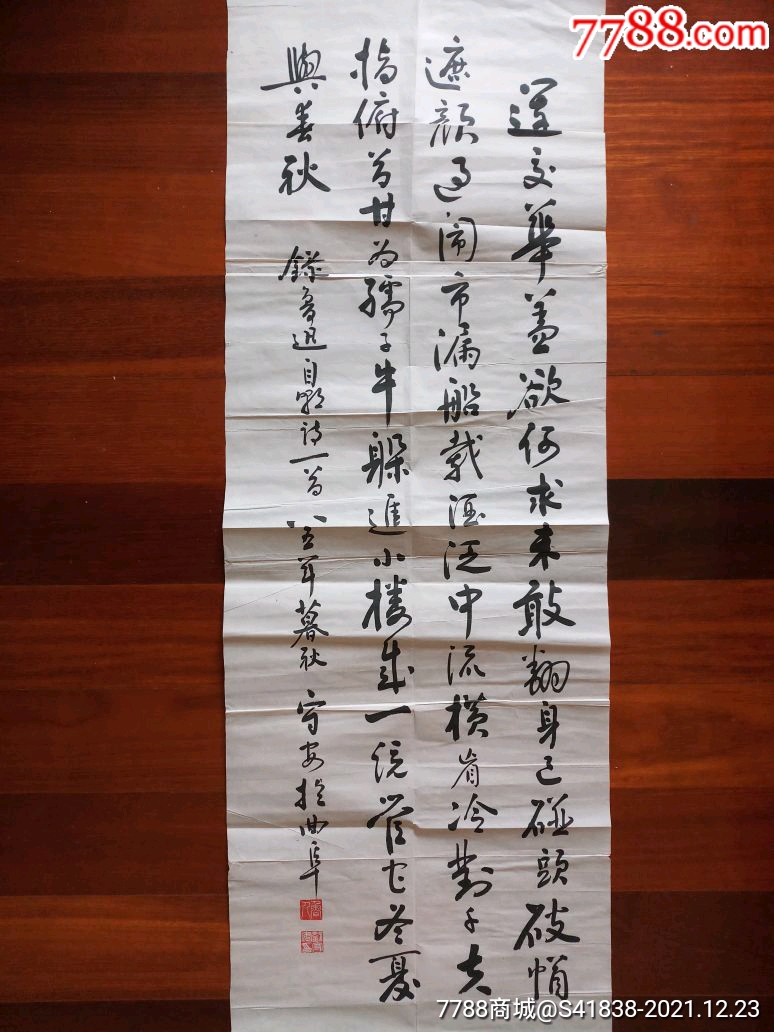 7788.com
運交華蓋欲何求未敢翻身已碰頭破帽
遮顔過鬧市漏船載酒泛中流橫眉冷對千夫
指俯首甘为孺子牛躲進小楼成一统管它冬夏
與春秋 錄魯迅自嘲詩一首 八五年暮秋 守安於曲阜
7788商城@S41838-2021.12.23